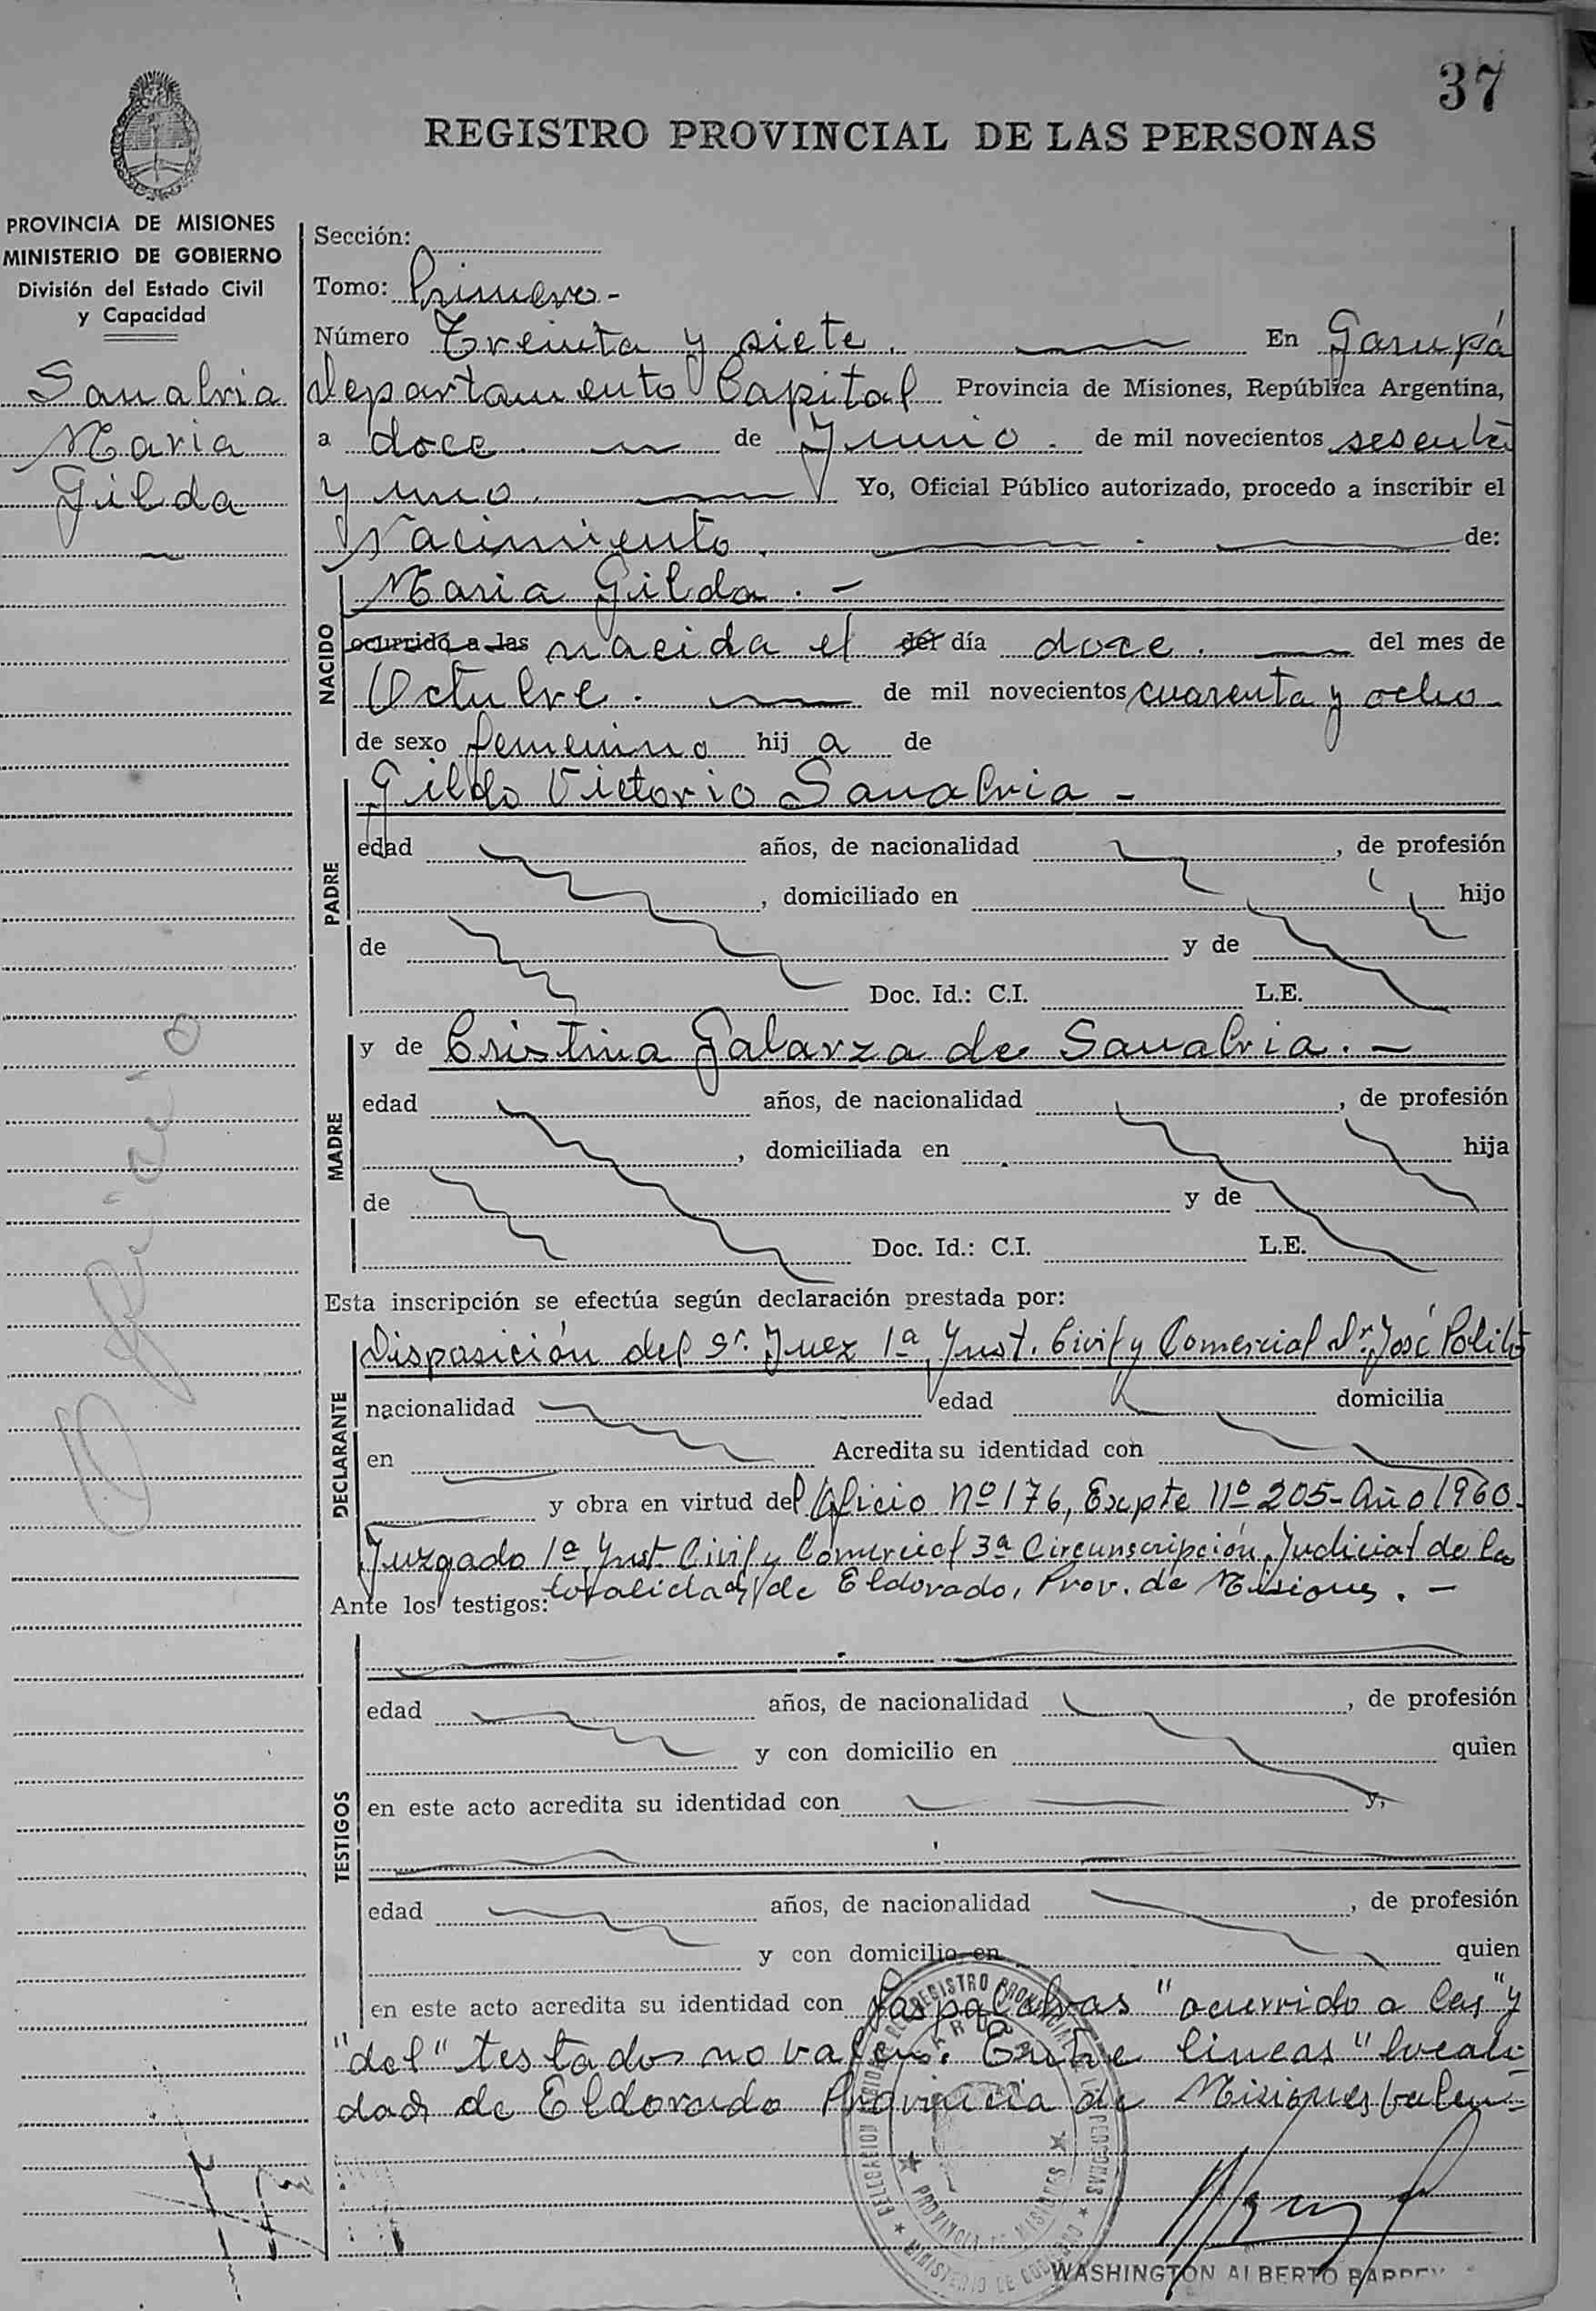 37
REGISTRO PROVINCIAL DE LAS PERSONAS
PROVINCIA DE MISIONES
MINISTERIO DE GOBIERNO
División del Estado Civil
y Capacidad
Sanabria
Maria
Gilda
Oficio
Sección:
Tomo: Primero -
Número Treinta y siete. En Garupá
Departamento Capital Provincia de Misiones, República Argentina,
a doce. de Junio. de mil novecientos sesenta
y uno. Yo, Oficial Público autorizado, procedo a inscribir el
Nacimiento. de:
NACIDO
Maria Gilda. -
ocurrido a las nacida el del día doce. del mes de
Octubre. de mil novecientos cuarenta y ocho
de sexo femenino hij a de
PADRE
Gildo Victorio Sanabria -
edad años, de nacionalidad , de profesión
, domiciliado en hijo
de y de
Doc. Id.: C.I. L.E.
MADRE
y de Cristina Galarza de Sanabria. -
edad años, de nacionalidad , de profesión
, domiciliada en hija
de y de
Doc. Id.: C.I. L.E.
Esta inscripción se efectúa según declaración prestada por:
DECLARANTE
Disposición del Sr. Juez 1a Inst. Civil y Comercial Dr. José
nacionalidad edad domicilia
en Acredita su identidad con
y obra en virtud del Oficio Nº 176, Expte Nº 205- Año 1960.
Juzgado 1a Inst Civil y Comercial 3a Circunscripción Judicial de la
Ante los testigos: localidad de Eldorado, Prov. de Misiones. -
TESTIGOS
edad años, de nacionalidad , de profesión
y con domicilio en quien
en este acto acredita su identidad con y,
edad años, de nacionalidad , de profesión
y con domicilio en quien
en este acto acredita su identidad con Las palabras "ocurrido a las" y
"del" testados no valen. Entre lineas "locali
dad de Eldorado Provincia de Misiones valen-
REGISTRO PROVINCIAL DE LAS PERSONAS
PROVINCIA DE MISIONES
MINISTERIO DE GOBIERNO
WASHINGTON ALBERTO